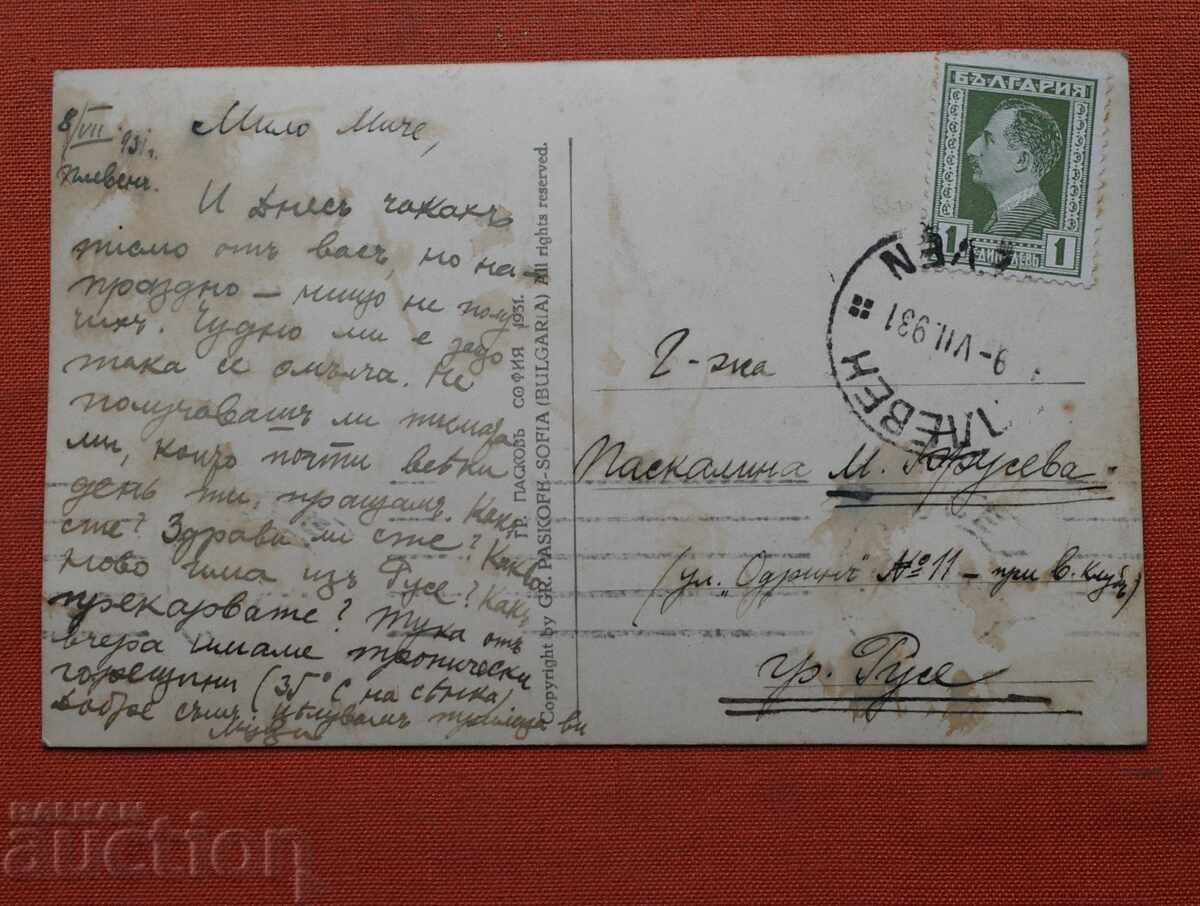 8/VII 931 г.
Плевенъ.
Мило Миче,
И днесъ чакахъ
писмо отъ васъ, но на-
праздно — нищо не полу
чихъ. Чудно ми е защо
така се омълча. Не
получавашъ ли писмата
ми, които почти всѣки
день ти пращамъ. Какъ
сте? Здрави ли сте? Какво
ново има изъ Русе? Какъ
прекарвате? Тука отъ
вчера имаме тропически
горещини (35° C на сѣнка)
Добре съмъ. Цѣлувамъ ви
ГР. ПАСКОВЪ СОФИЯ 1931.
Copyright by GR. PASKOFF-SOFIA (BULGARIA) All rights reserved.
БЪЛГАРИЯ
1 ЕДИНЪ ЛЕВЪ 1
ПЛЕВЕН
9-VII.931
VEN
Г-жа
Паскалина М. Брусева
(ул. „Одринъ" № 11 — при В. Клубъ)
гр. Русе
BALKAN
auction